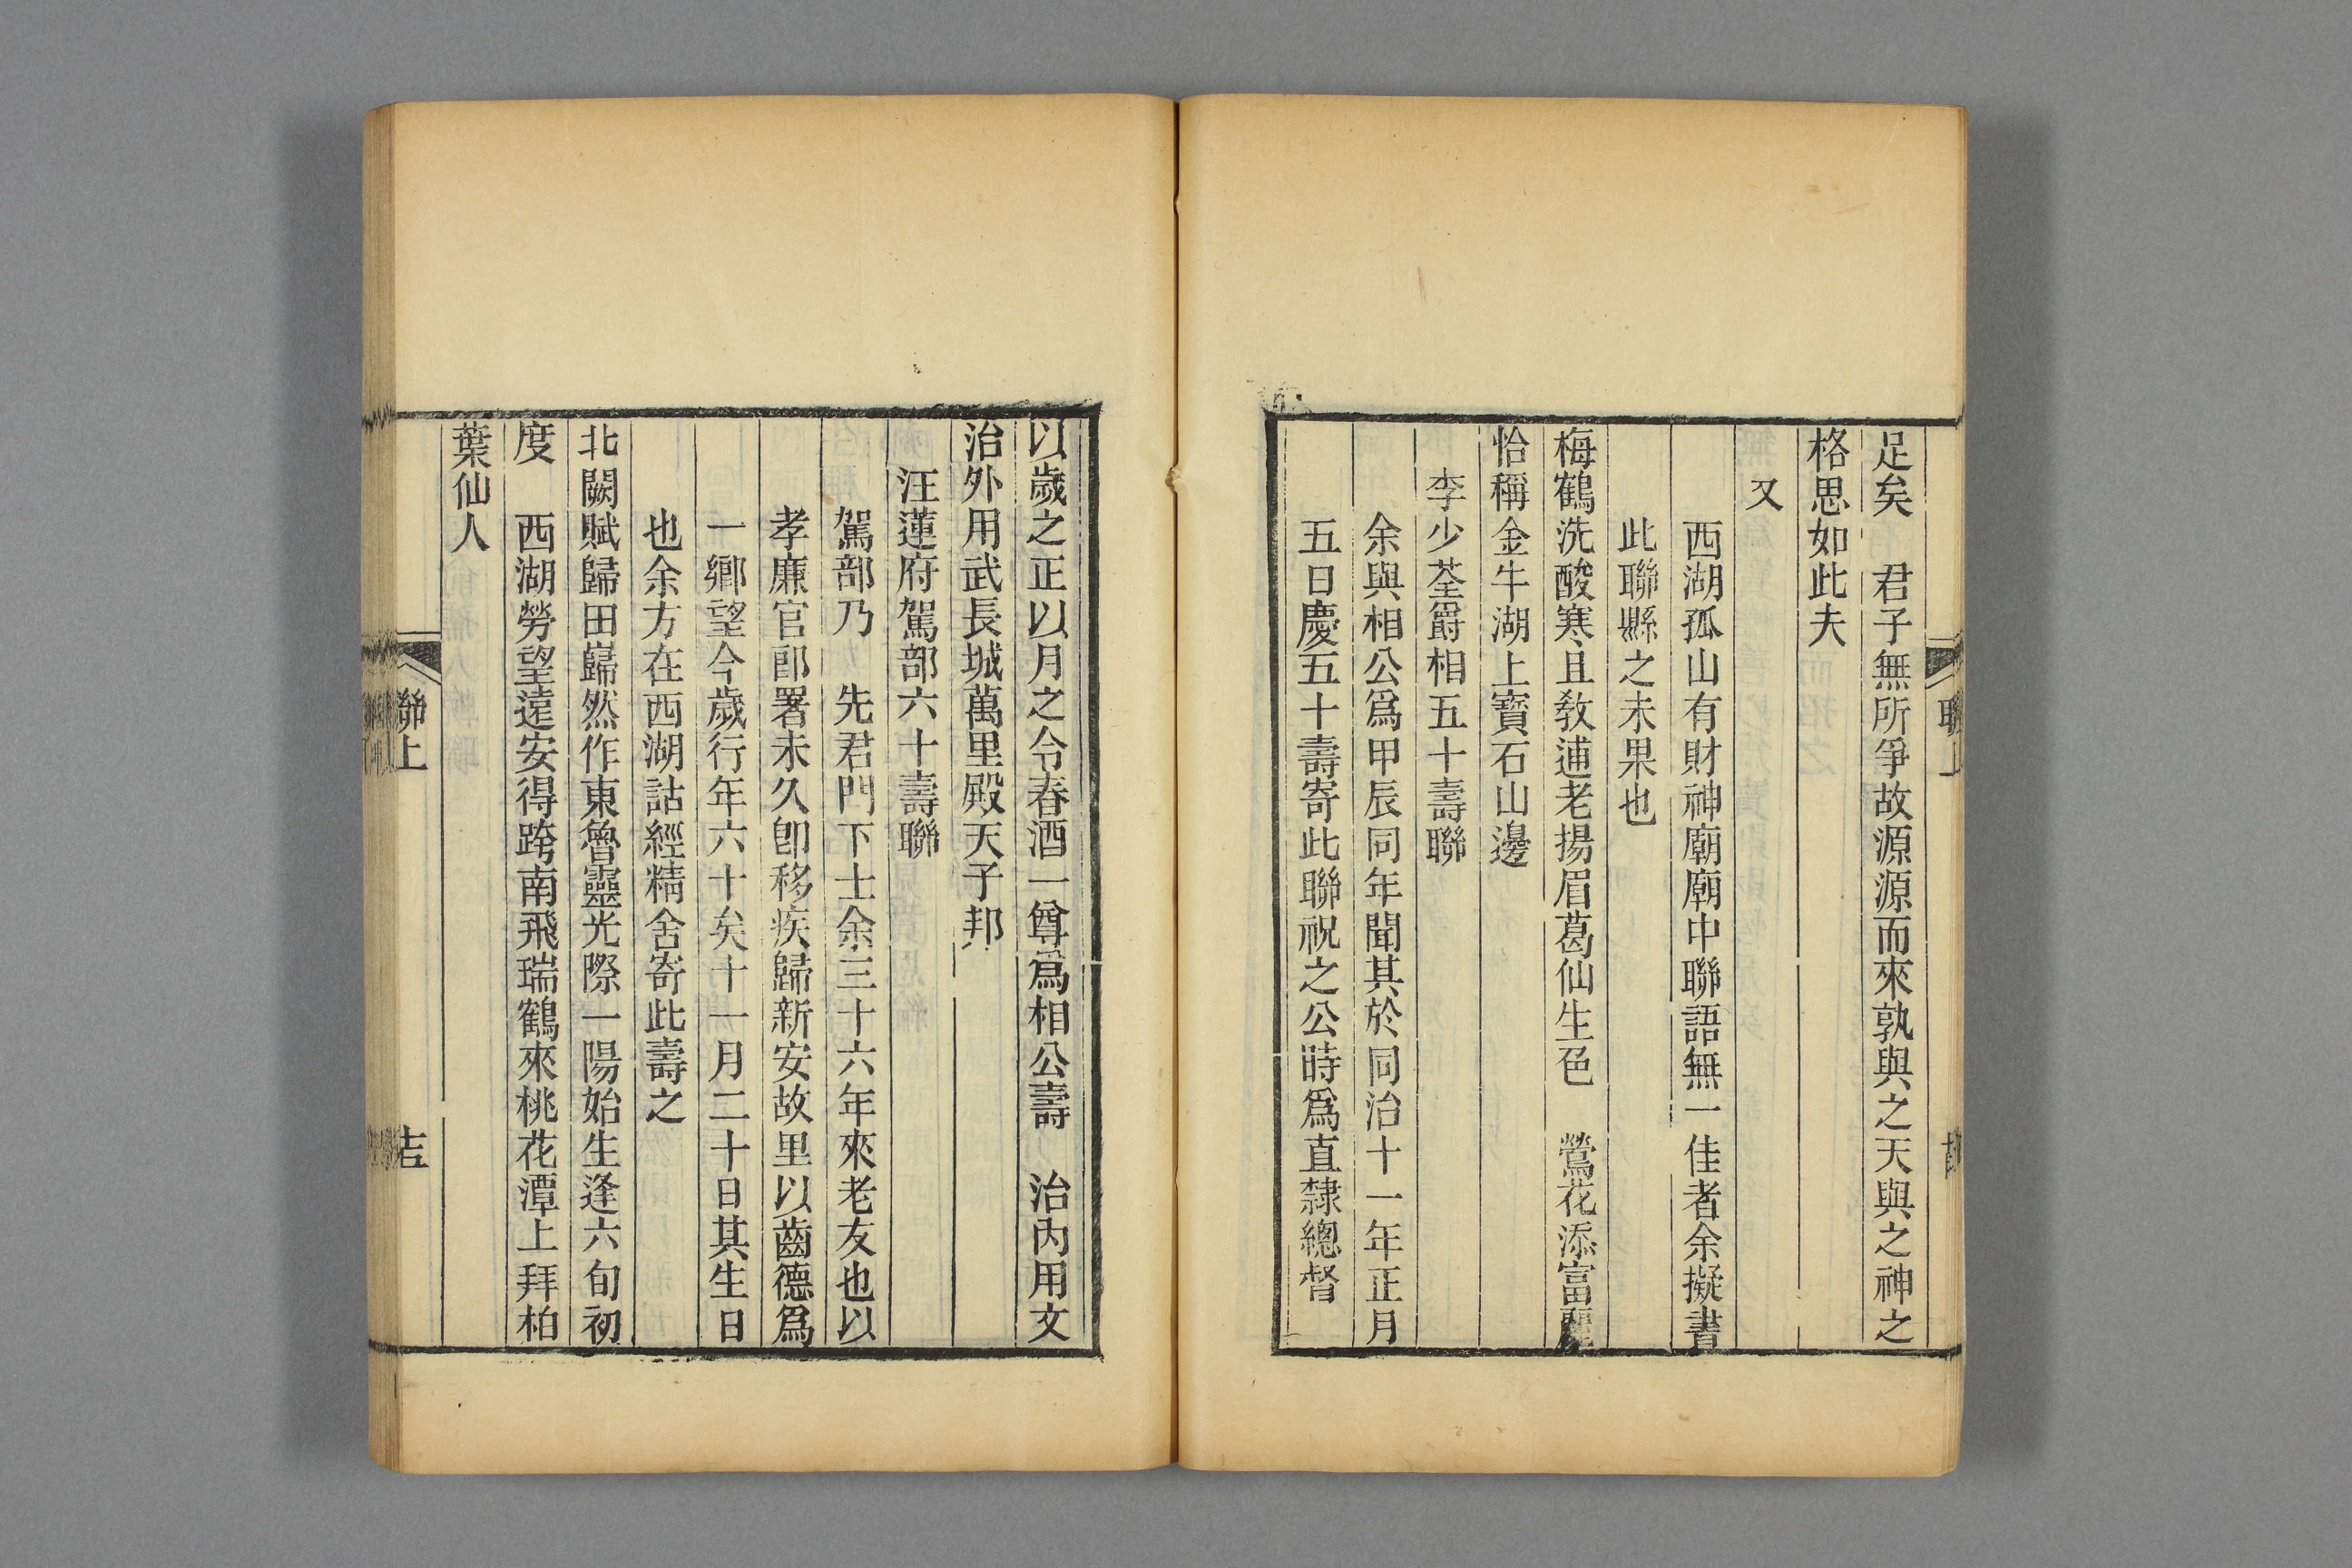 足矣　君子無所爭故源源而來孰與之天與之神之
格思如此夫
又
西湖孤山有財神廟廟中聯語無一佳者余擬書
此聯縣之未果也
梅鶴洗酸寒且敎逋老揚眉葛仙生色　鶯花添富麗
恰稱金牛湖上寶石山邊
李少荃爵相五十壽聯
余與相公爲甲辰同年聞其於同治十一年正月
五日慶五十壽寄此聯祝之公時爲直隸總督
以歲之正以月之令春酒一尊爲相公壽　治內用文
治外用武長城萬里殿天子邦
汪蓮府駕部六十壽聯
駕部乃　先君門下士余三十六年來老友也以
孝廉官郎署未久卽移疾歸新安故里以齒德爲
一鄉望今歲行年六十矣十一月二十日其生日
也余方在西湖詁經精舍寄此壽之
北闕賦歸田巋然作東魯靈光際一陽始生逢六旬初
度　西湖勞望遠安得跨南飛瑞鶴來桃花潭上拜柏
葉仙人
聯上